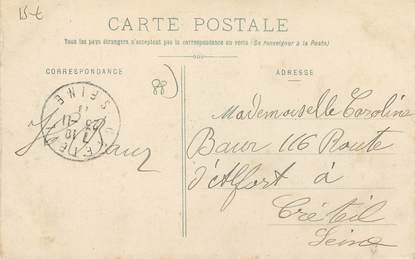 15 €
CARTE POSTALE
Tous les pays étrangers n'acceptent pas la correspondance au verso (Se renseigner à la Poste)
CORRESPONDANCE
ADRESSE
88)
SEINE
Mademoiselle Caroline
Baur 116 Route
d'Alfort à
Créteil
Seine